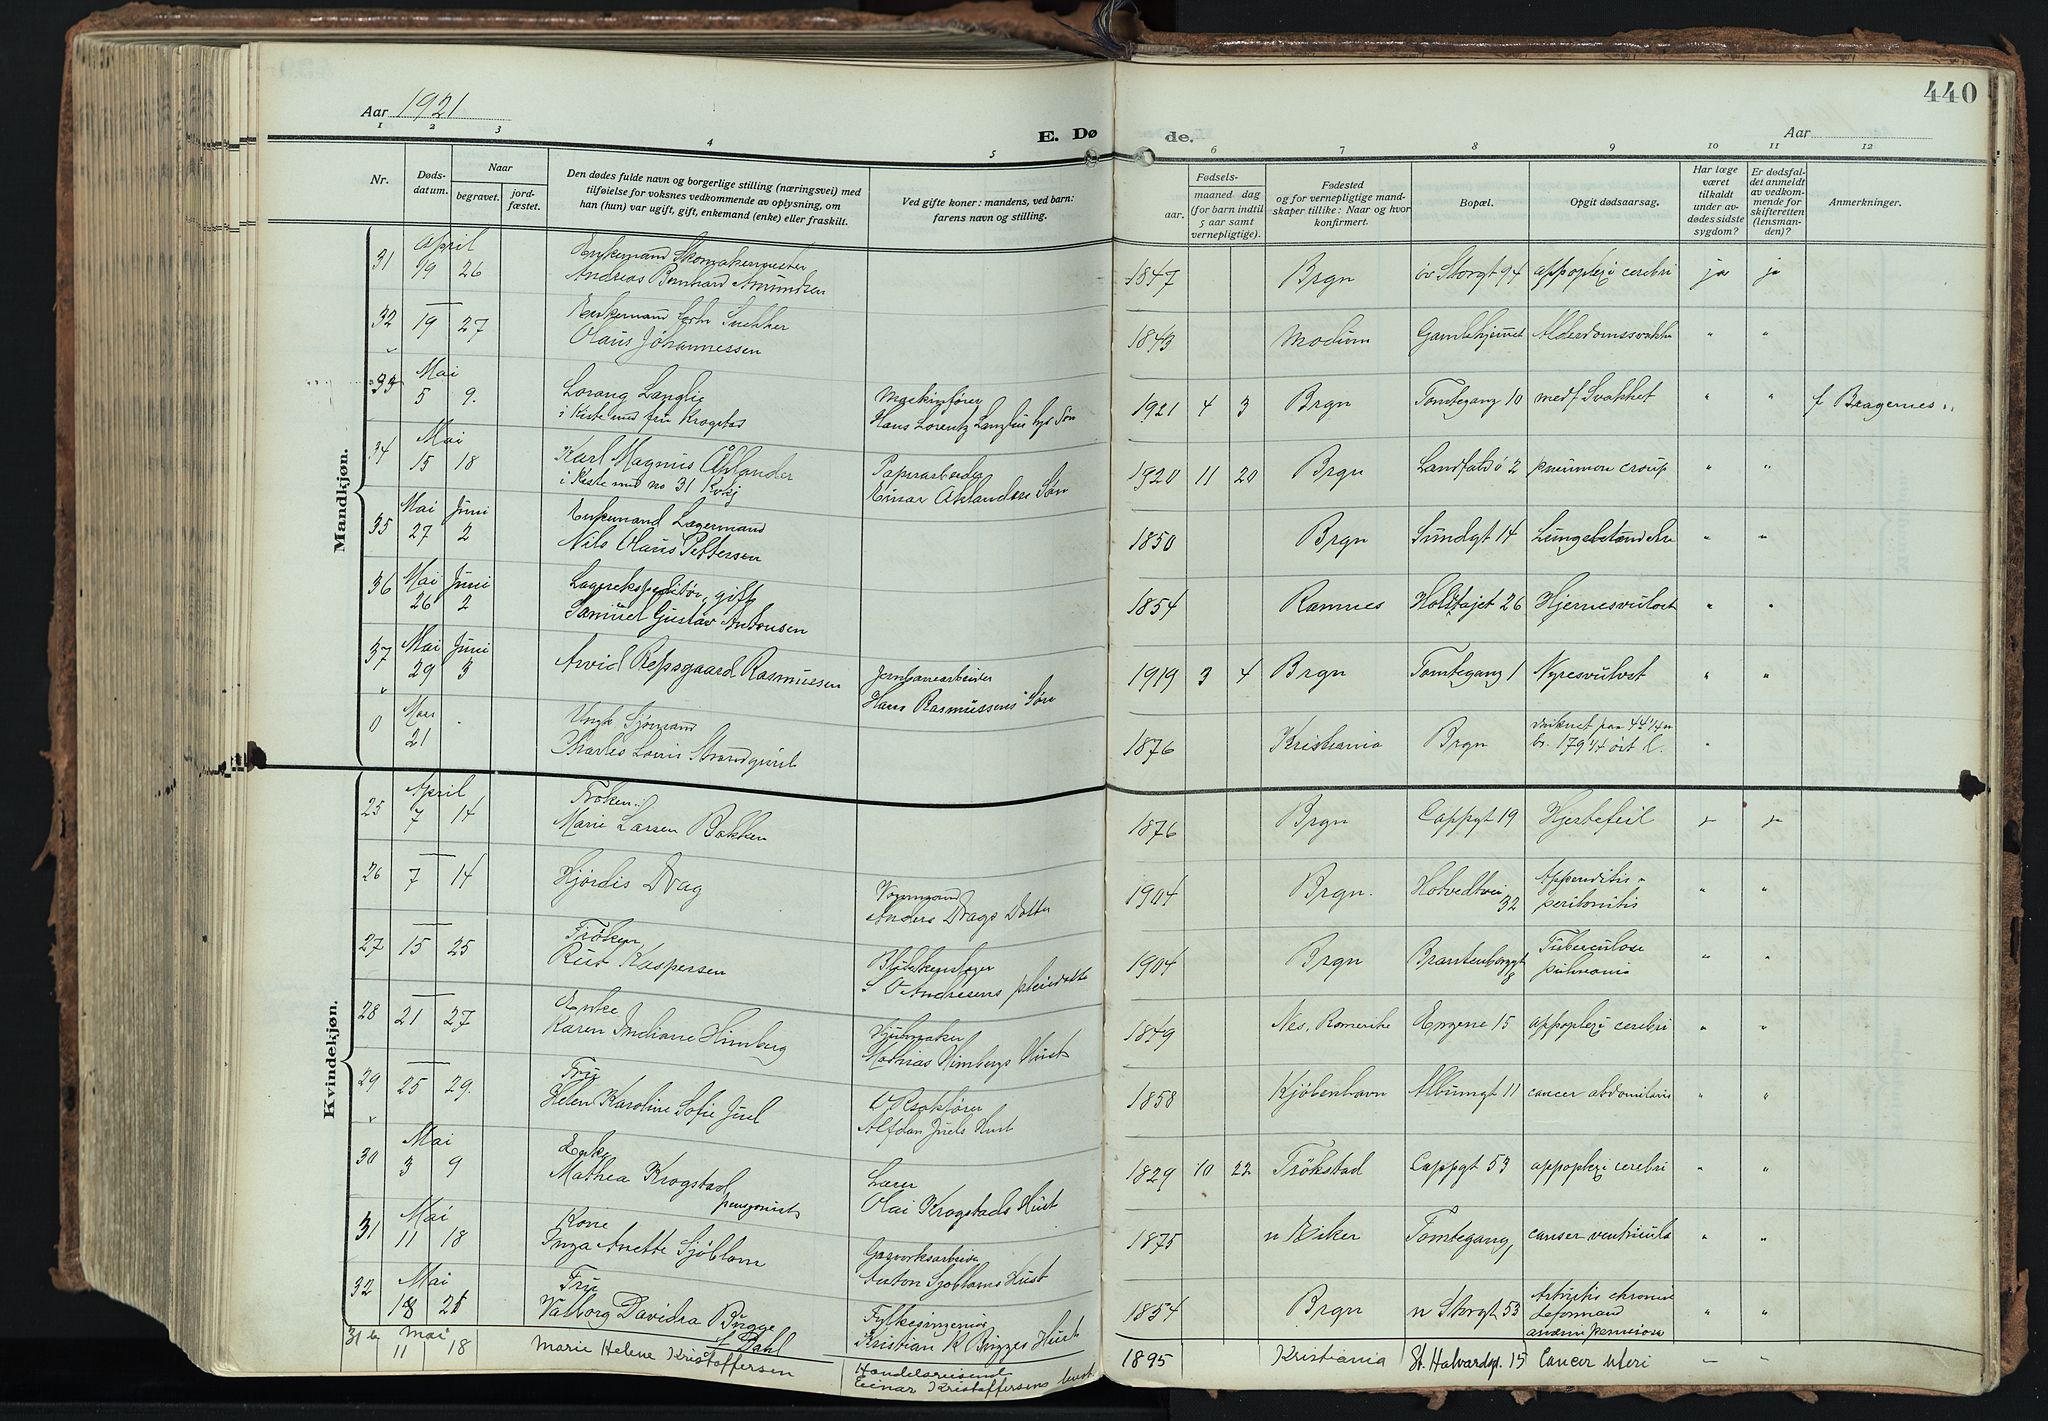 440
Aar 1921
Aar
E. Dø de.
1 2 3 4 5 6 7 8 9 10 11 12
Nr.
Døds-
datum.
Naar
begravet.
jord-
fæstet.
Den dødes fulde navn og borgerlige stilling (næringsvei) med
tilføielse for voksnes vedkommende av oplysning, om
han (hun) var ugift, gift, enkemand (enke) eller fraskilt.
Ved gifte koner: mandens, ved barn:
farens navn og stilling.
Fødsels-
aar.
maaned dag
(for barn indtil
5 aar samt
vernepligtige).
Fødested
og for vernepligtige mand-
skaper tillike: Naar og hvor
konfirmert.
Bopæl.
Opgit dødsaarsag.
Har læge
været
tilkaldt
under av-
dødes sidste
sygdom?
Er dødsfal-
det anmeldt
av vedkom-
mende for
skifteretten
(lensman-
den)?
Anmerkninger.
Mandkjøn.
April
31 19 26 Enkemand Skomakermester
Andreas Bernhard Amundsen 1847 Brgn øv Storgt 94 appoplexi cerebri ja ja
32 19 27 Enkemand Snekker
Olaus Johannessen 1843 Modum Gamlehjemmet Alderdomssvakke " "
Mai
33 5 9. Lorang Langlie Maskinfører 1921 4 3 Brgn Tomtegang 10 medf Svakhet " " f Bragernes
i Kiste med fru Krogstad Hans Lorentz Langlies Søn
Mai
34 15 18 Karl Magnus Åhlander Papirarbeider 1920 11 20 Brgn Landfalsø 2 pneumon croup " "
i Kiste med no 31 Kvkj Einar Åhlanders Søn
Mai Juni
35 27 2 Enkemand Lagermand
Nils Olaus Pettersen 1850 Brgn Sundgt 14 Lungebetændelse " "
Mai Juni
36 26 2 Lagerekspeditør, gift
Samuel Gustav Antonsen 1854 Ramnes 26 Hjernesvulst " "
Mai Juni
37 29 3 Arvid Repsgaard Rasmussen Jernbanearbeider 1919 3 4 Brgn Tomtegang 1 Nyresvulst " "
Hans Rasmussens Søn
0 21 Ungk Sjømand
Charles Louis Strandquist 1876 Kristiania Brgn druknet paa "
Kvindekjøn.
April
25 7 14 Frøken
Marie Larsen Bakken 1876 Brgn Cappgt 19 Hjertefeil
26 7 14 Hjördis Drag Vognmand 1904 Brgn. Hotvedtvei 32 Appendicitis
Anders Drags Datter peritonitis " "
27 15 25 Frøken
Rut Kaspersen Blikkenslager 1904 Brgn Brantenborggt 8 Tuberculose
Andresens pleiedatter pulmonis " "
28 21 27 Enke
Karen Indiane Himberg Hjulmaker 1849 Nes, Romerike Engene 15 appoplexi cerebri " "
Mathias Himbergs Hust
29 25 29. Fru
Helen Karoline Sofie Juel O Rsakfører 1858 Kjøbenhavn Albumgt 11 cancer abdominis " "
Alfdan Juels Hust
Mai
30 3 9 Enke
Mathea Krogstad Lærer 1829 10 22 Trøkstad Cappgt 53 appoplexi cerebri " "
pensjonist Olai Krogstads Hust
Mai
31 11 18 Kone
Inga Anette Sjöblom Gasverksarbeider 1875 n Eiker Tomtegang, canser ventriculi " "
Anton Sjöbloms Hust
Mai
32 18 25 Fru
Valborg Davidra Bügge Fylkesingeniør 1854 Brgn n Storgt 53 Artritis chronic
f Dahl Kristian K Bügges Hust deformand " "
31 b mai
11 18 Marie Helene Kristoffersen Handelsreisend 1895 Kristiania St. Halvardgt. 15 Cancer uteri
Einar Kristoffersens hust.